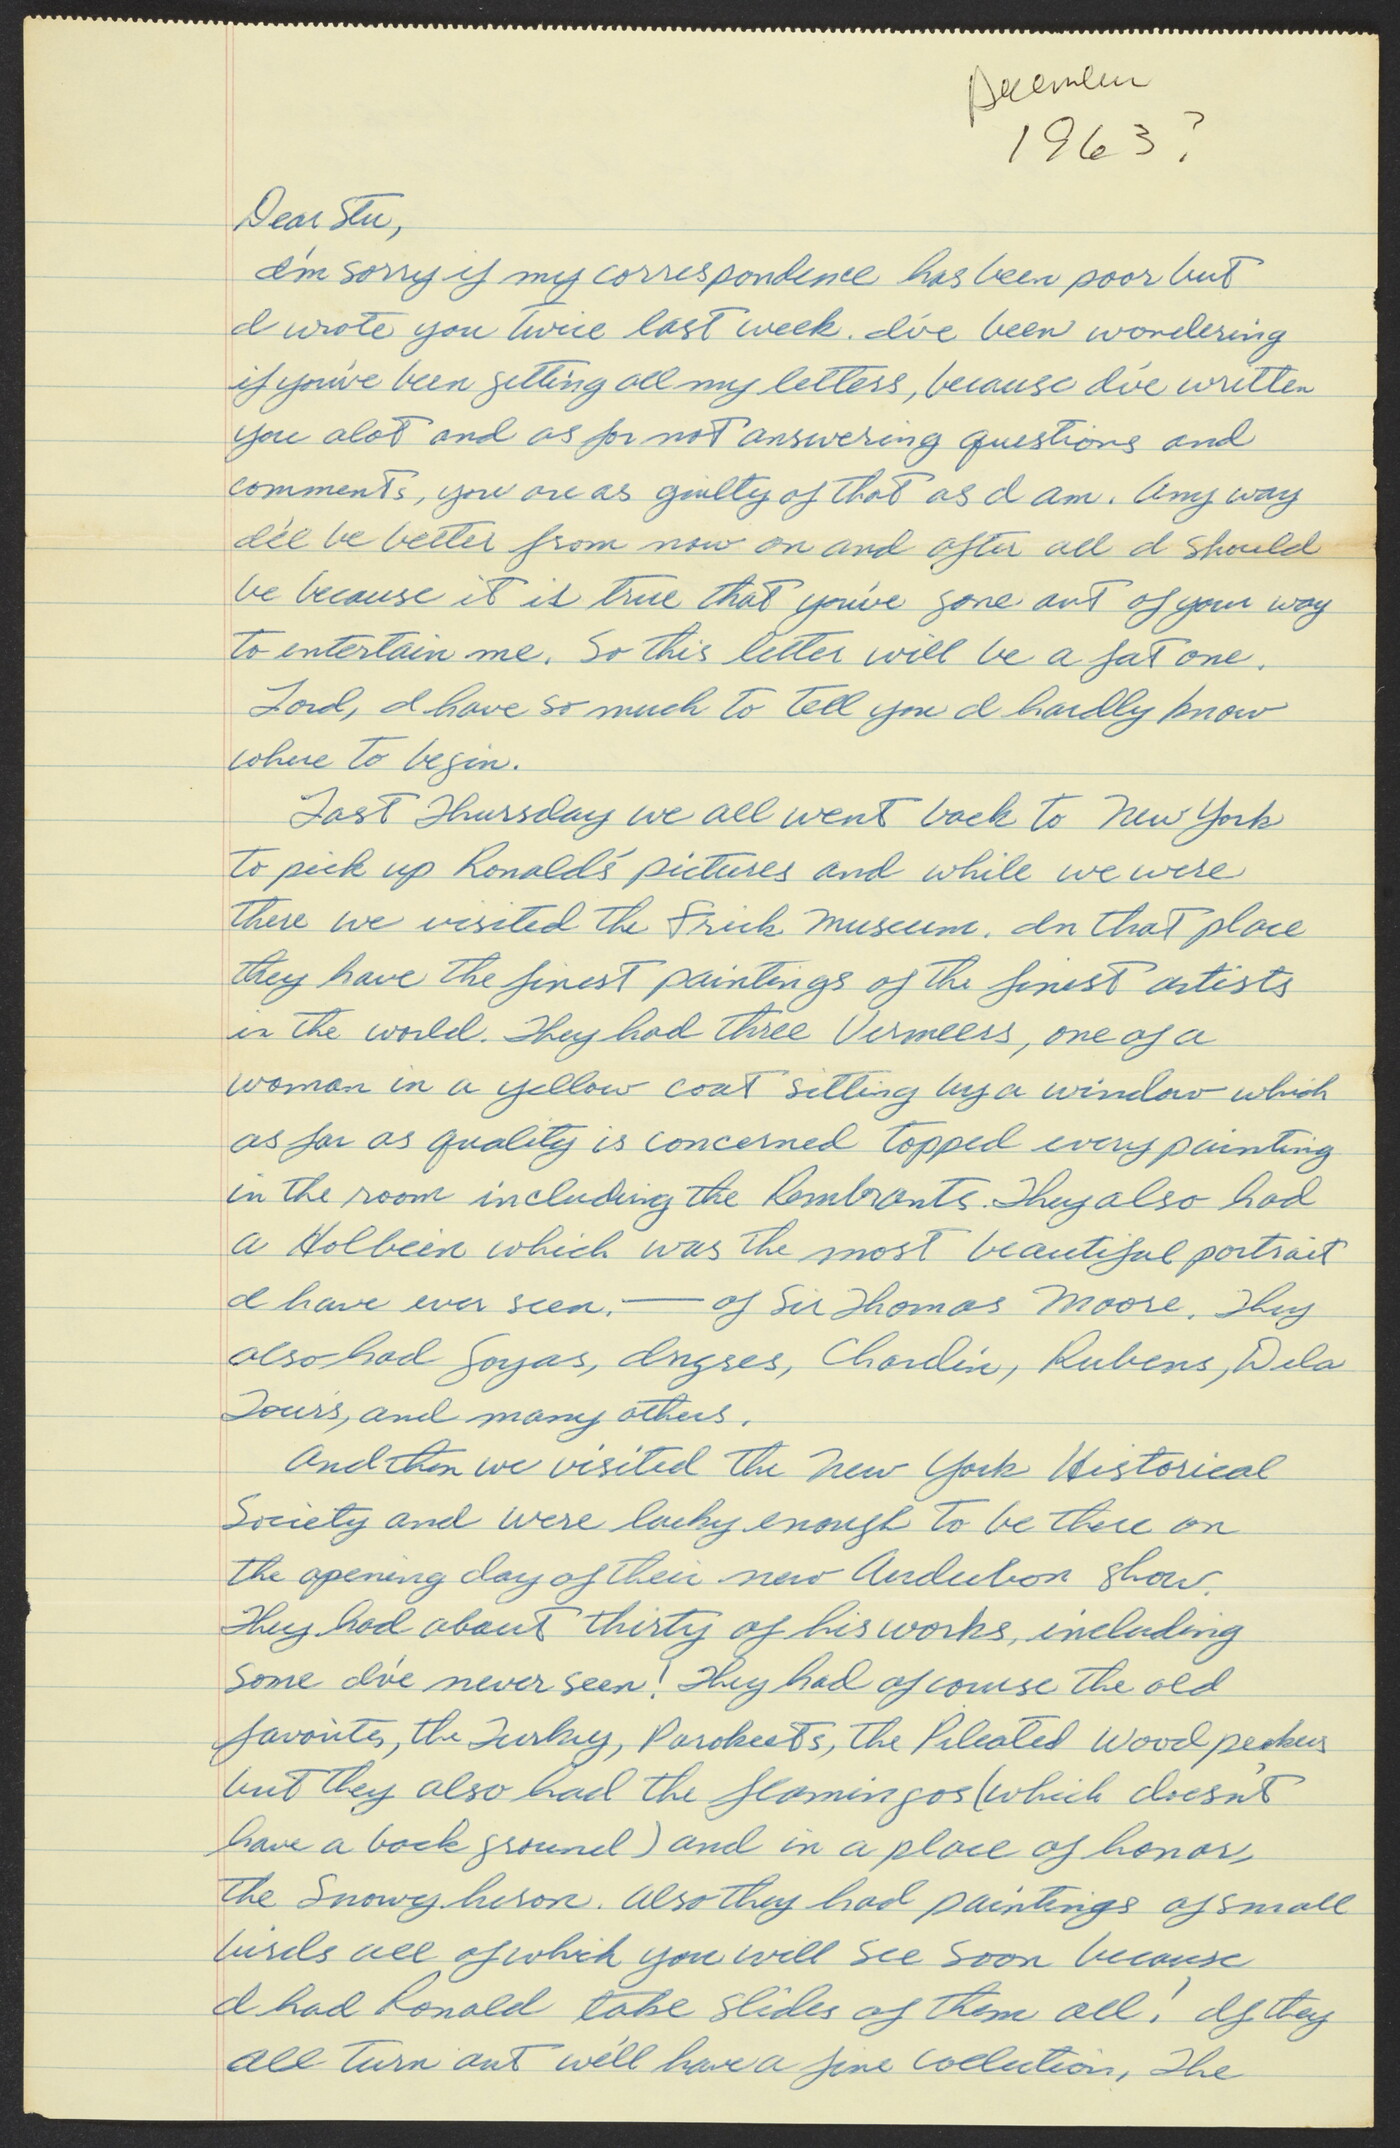 December
1963?
Dear Stu,
I'm sorry if my correspondence has been poor but
I wrote you twice last week. I've been wondering
if you've been getting all my letters, because I've written
you alot and as for not answering questions and
comments, you are as guilty of that as I am. Any way
I'll be better from now on and after all I should
be because it is true that you've gone out of your way
to entertain me. So this letter will be a fat one.
Lord, I have so much to tell you I hardly know
where to begin.
Last Thursday we all went back to New York
to pick up Ronald's pictures and while we were
there we visited the Frick Museum. In that place
they have the finest paintings of the finest artists
in the world. They had three Vermeers, one of a
woman in a yellow coat sitting by a window which
as far as quality is concerned topped every painting
in the room including the Rembrants. They also had
a Holbein which was the most beautiful portrait
I have ever seen. — of Sir Thomas Moore. They
also had Goyas, Ingres, Chardin, Rubens, De la
Tours, and many others.
And then we visited the New York Historical
Society and were lucky enough to be there on
the opening day of their new Audubon show.
They had about thirty of his works, including
some I've never seen! They had of course the old
favorites, the Turkey, Parokeets, the Pileated Wood peckers
but they also had the flamingos (which doesn't
have a back ground) and in a place of honor,
the Snowy heron. Also they had paintings of small
birds all of which you will see soon because
I had Ronald take slides of them all! If they
all turn out we'll have a fine collection, The